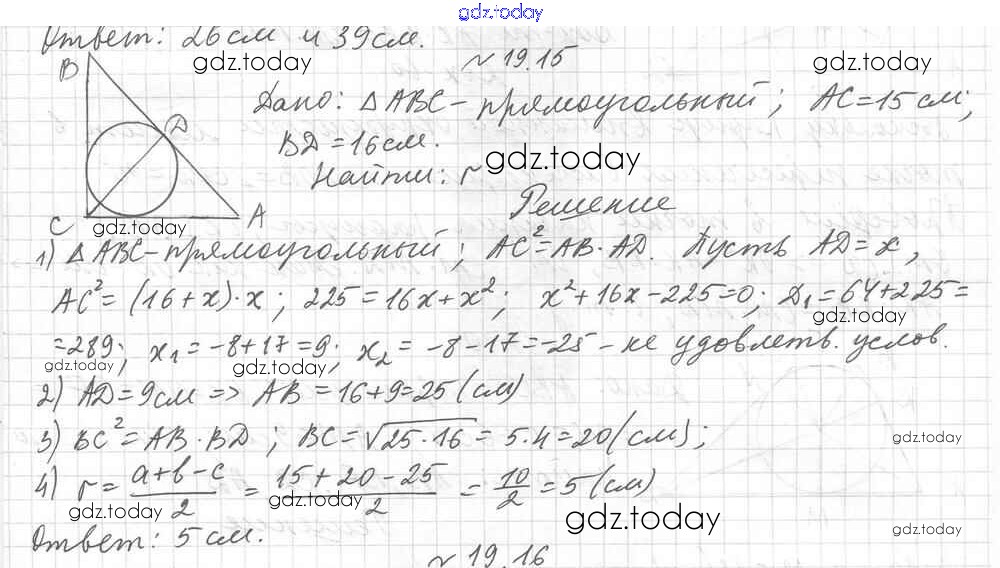 gdz.today
Ответ: 26 см и 39 см.
gdz.today
№ 19.15
gdz.today
B
Дано: △ABC - прямоугольный; AC = 15 см;
D
BD = 16 см.
gdz.today
Найти: r
Решение
C
A
gdz.today
1) △ABC - прямоугольный; AC² = AB · AD. Пусть AD = x,
AC² = (16 + x) · x; 225 = 16x + x²; x² + 16x - 225 = 0; D₁ = 64 + 225 =
gdz.today
= 289; x₁ = -8 + 17 = 9; x₂ = -8 - 17 = -25 - не удовлетв. услов.
gdz.today
gdz.today
2) AD = 9 см => AB = 16 + 9 = 25 (см)
3) BC² = AB · BD; BC = √25 · 16 = 5 · 4 = 20 (см);
gdz.today
4) r = a + b - c / 2 = 15 + 20 - 25 / 2 = 10 / 2 = 5 (см)
gdz.today
gdz.today
gdz.today
gdz.today
Ответ: 5 см.
№ 19.16